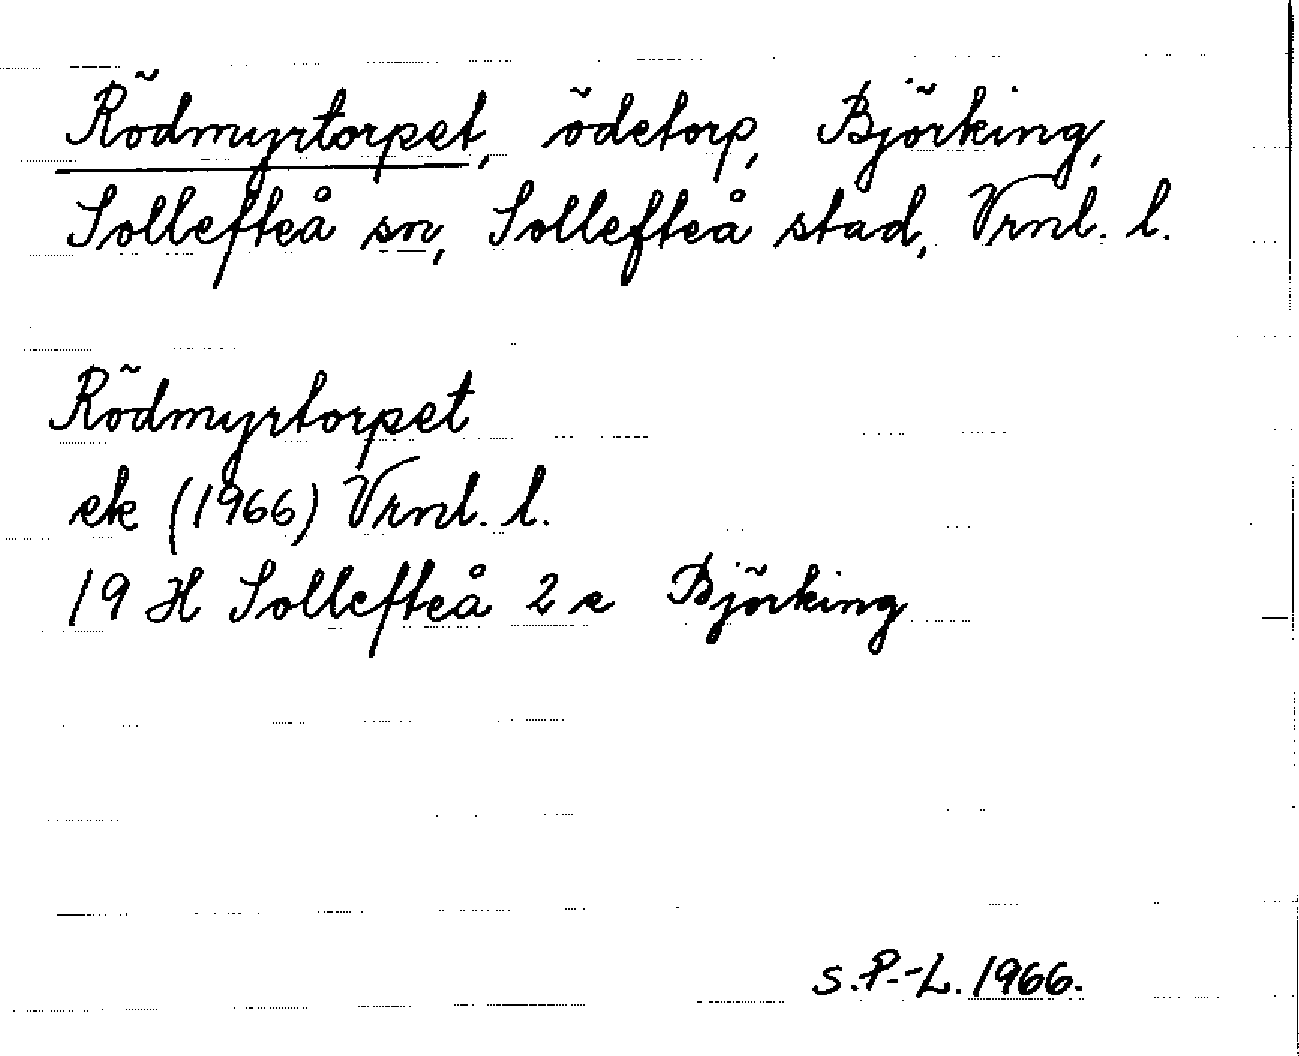 Rödmyrtorpet, ödetorp, Björking,
Sollefteå sn, Sollefteå stad, Vrnl. l.
Rödmyrtorpet
ek (1966) Vrnl. l.
19 H Sollefteå 2 e Björking
S.P.-L. 1966.